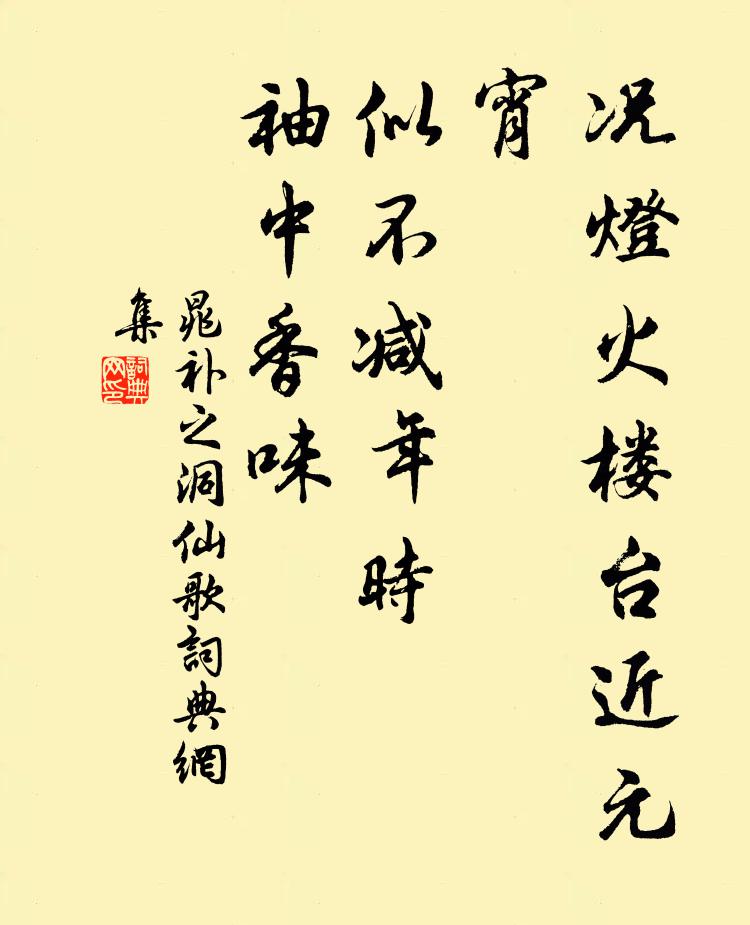 况燈火楼台近元
宵
似不减年時
袖中香味
晁补之洞仙歌詞典網
集
詞典网印